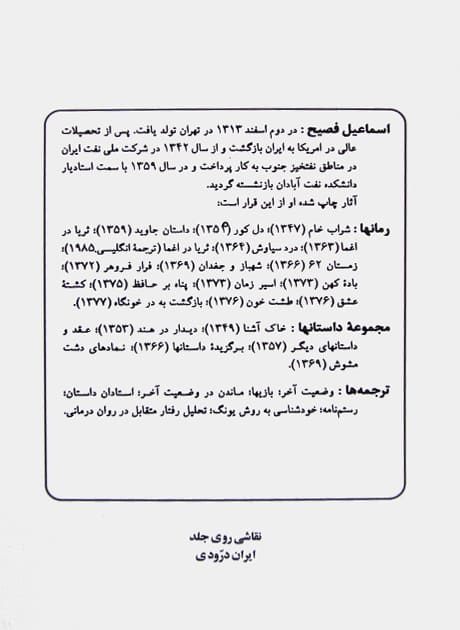 اسماعیل فصیح : در دوم اسفند ۱۳۱۳ در تهران تولد یافت. پس از تحصیلات
عالی در امریکا به ایران بازگشت و از سال ۱۳۴۲ در شرکت ملی نفت ایران
در مناطق نفتخیز جنوب به کار پرداخت و در سال ۱۳۵۹ با سمت استادیار
دانشکده نفت آبادان بازنشسته گردید.
آثار چاپ شده او از این قرار است:
رمانها : شراب خام (۱۳۴۷)؛ دل کور (۱۳۵۴)؛ داستان جاوید (۱۳۵۹)؛ ثریا در
اغما (۱۳۶۳)؛ درد سیاوش (۱۳۶۴)؛ ثریا در اغما (ترجمهٔ انگلیسی،۱۹۸۵)؛
زمستان ۶۲ (۱۳۶۶)؛ شهباز و جغدان (۱۳۶۹)؛ فرار فروهر (۱۳۷۲)؛
بادهٔ کهن (۱۳۷۳)؛ اسیر زمان (۱۳۷۳)؛ پناه بر حافظ (۱۳۷۵)؛ کشتهٔ
عشق (۱۳۷۶)؛ طشت خون (۱۳۷۶)؛ بازگشت به در خونگاه (۱۳۷۷).
مجموعهٔ داستانها : خاک آشنا (۱۳۴۹)؛ دیدار در هند (۱۳۵۳)؛ عقد و
داستانهای دیگر (۱۳۵۷)؛ برگزیدهٔ داستانها (۱۳۶۶)؛ نمادهای دشت
مشوش (۱۳۶۹).
ترجمه‌ها : وضعیت آخر؛ بازیها؛ ماندن در وضعیت آخر؛ استادان داستان؛
رستم‌نامه؛ خودشناسی به روش یونگ؛ تحلیل رفتار متقابل در روان درمانی.
نقاشی روی جلد
ایران درّودی